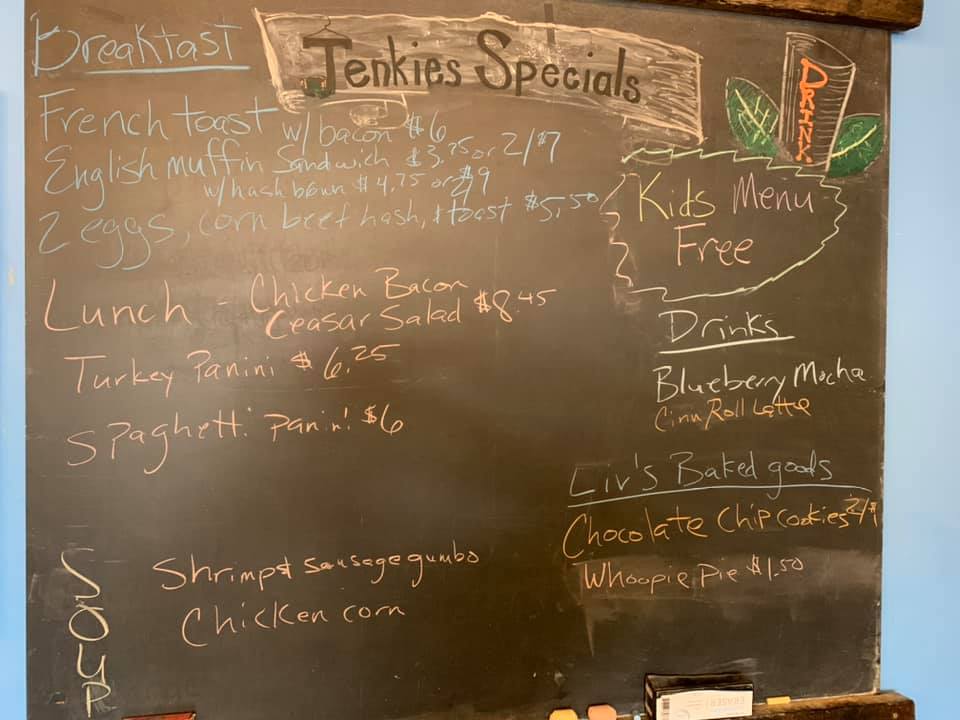 Jenkies Specials
Breakfast
French toast w/ bacon $6
English muffin Sandwich $3.75 or 2/$7
w/ hash brown $4.75 or 2/9
2 eggs, corn beef hash, & toast $5.50
Lunch - Chicken Bacon
Ceasar Salad $8.45
Turkey Panini $6.25
Spaghetti Panini $6
SOUP
Shrimp & sausage gumbo
Chicken corn
DRINK
Kids Menu
Free
Drinks
Blueberry Mocha
Cinn Roll Latte
Liv's Baked goods
Chocolate Chip cookies 2/$1
Whoopie Pie $1.50
ERASER